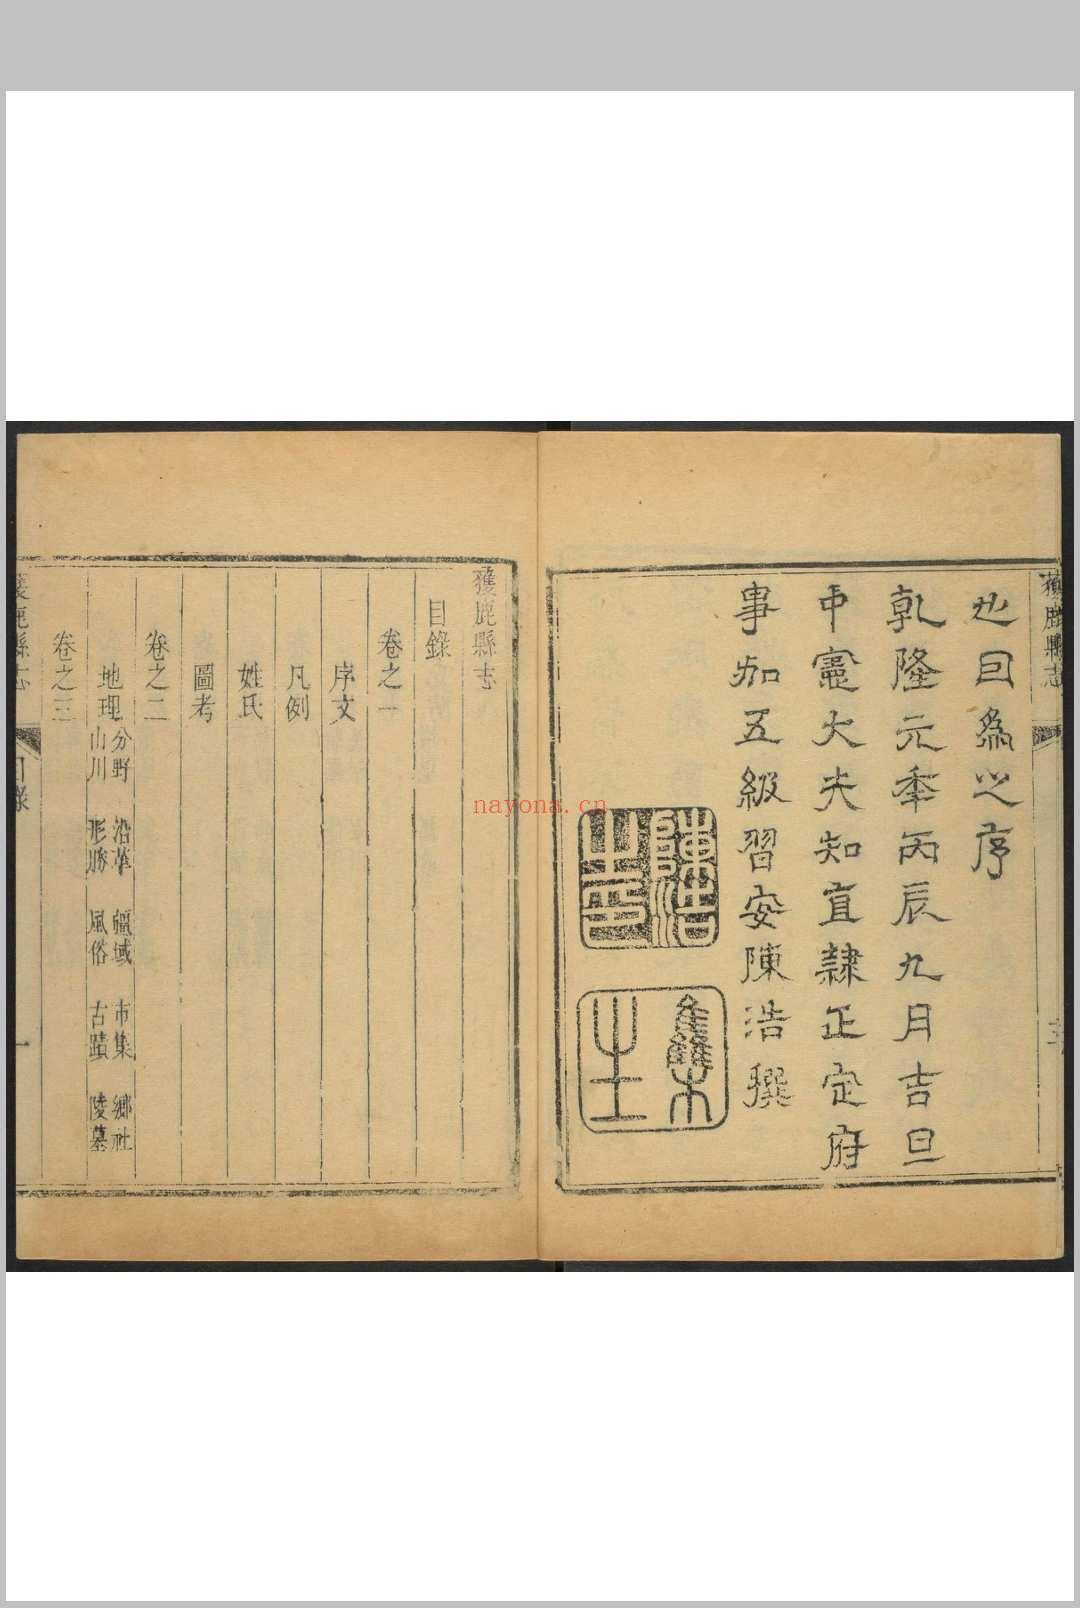 獲鹿縣志
也囙為之序
乾隆元秊丙辰九月吉旦
中憲大夫知直隸正定府
事加五級習安陳浩撰
陳浩之印
集生
nayona.cn
獲鹿縣志
目錄
卷之一
序文
凡例
姓氏
圖考
卷之二
地理 分野 沿革 疆域 市集 鄉社
山川 形勝 風俗 古蹟 陵墓
卷之三
獲鹿縣志 目錄 一